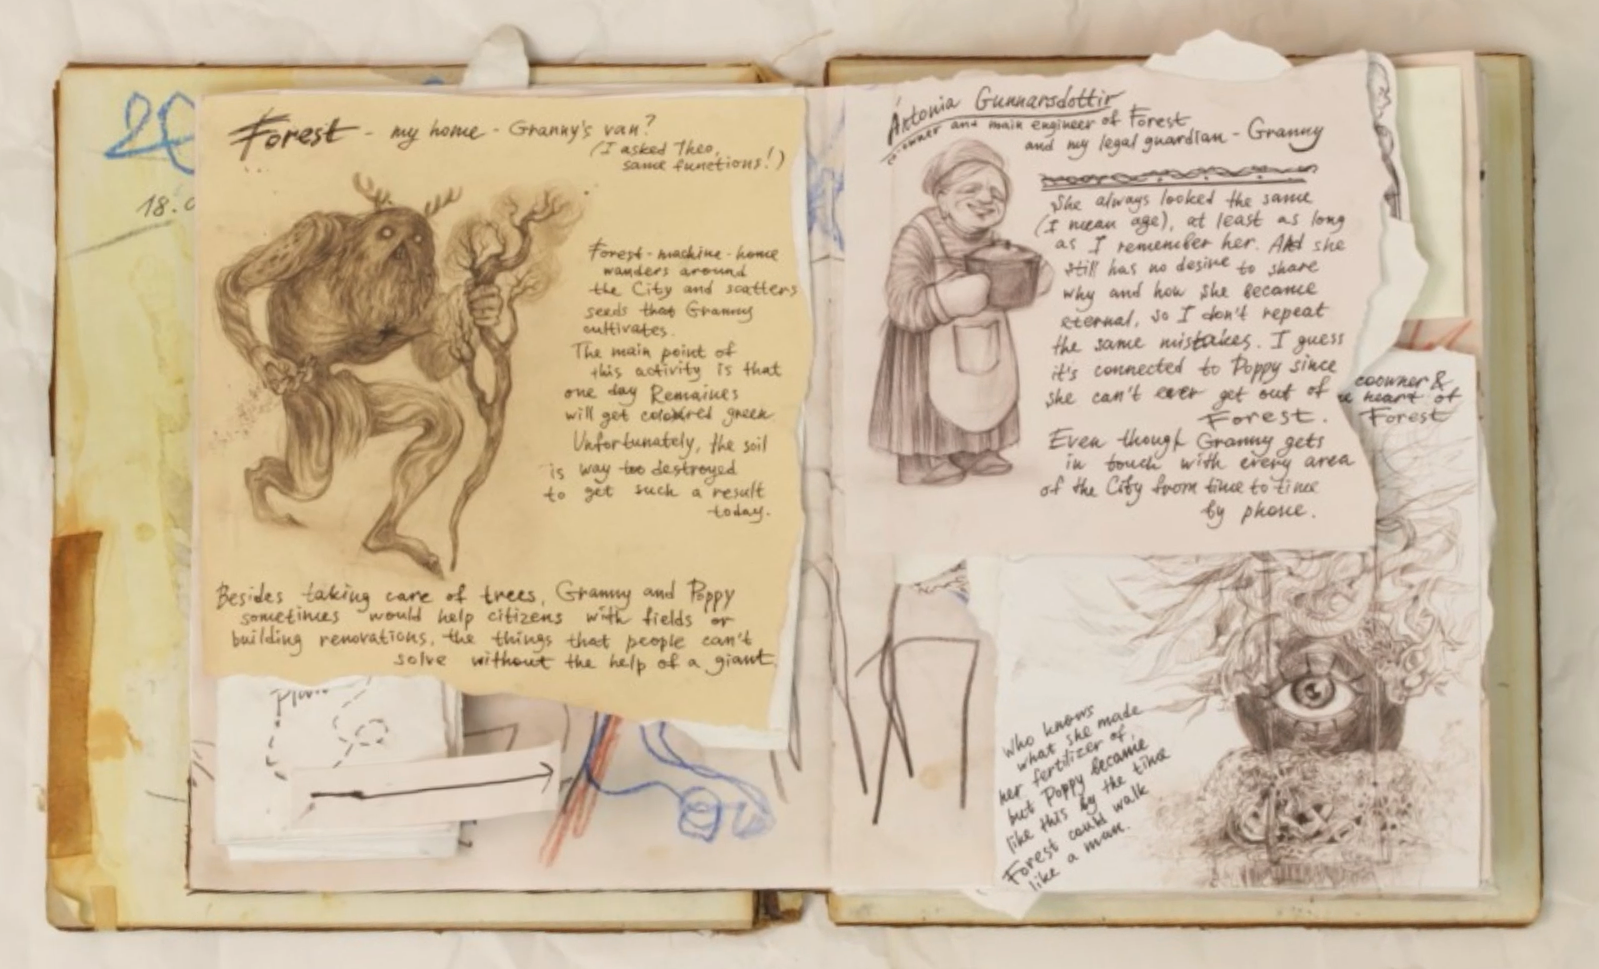 Forest - my home - Granny's van?
(I asked Theo,
same functions!)
Forest - machine - home
wanders around
the City and scatters
seeds that Granny
cultivates.
The main point of
this activity is that
one day Remaines
will get coloured green
Unfortunately, the soil
is way too destroyed
to get such a result
today.
Besides taking care of trees, Granny and Poppy
sometimes would help citizens with fields or
building renovations, the things that people can't
solve without the help of a giant.
18.0
Antonia Gunnarsdottir
co-owner and main engineer of Forest
and my legal guardian - Granny
She always looked the same
(I mean age), at least as long
as I remember her. And she
still has no desire to share
why and how she became
eternal, so I don't repeat
the same mistakes. I guess
it's connected to Poppy since
she can't ever get out of
Forest.
Even though Granny gets
in touch with every area
of the City from time to time
by phone.
coowner &
heart of
Forest
who knows
what she made
her fertilizer of,
but Poppy became
like this by the time
Forest could walk
like a man.